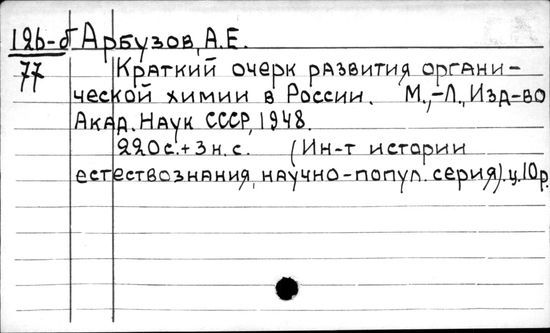 126-б Арбузов, А.Е.
77 Краткий очерк развития органи-
ческой химии в России. М.,-Л., Изд-во
Акад. Наук СССР, 1948.
220 с.+3 н.с. (Ин-т истории
естествознания, научно-попул. серия). ц. 10 р.